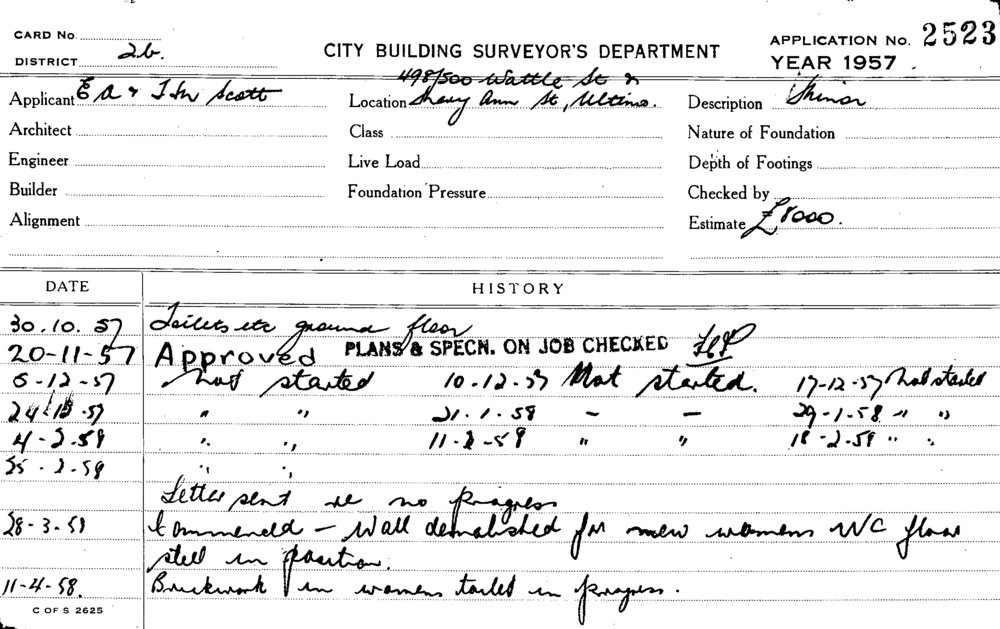 CARD No.
DISTRICT 2b.
CITY BUILDING SURVEYOR'S DEPARTMENT
APPLICATION No. 2523
YEAR 1957
Applicant E A & J M Scott
Location 498/500 Wattle St &
Mary Ann St, Ultimo.
Description Minor
Architect
Class
Nature of Foundation
Engineer
Live Load
Depth of Footings
Builder
Foundation Pressure
Checked by
Alignment
Estimate £8000.
DATE HISTORY
30.10.57 Toilets etc ground floor
20-11-57 Approved PLANS & SPECN. ON JOB CHECKED
5-12-57 Not started 10-12-57 Not started. 17-12-57 Not started
24-12-57 " " 21-1-58 - - 29-1-58 " "
4-2-58 " " 11-2-58 " " 18-2-58 " "
25-2-58 " "
Letter sent re no progress
28-3-58 Commenced - Wall demolished for new womens WC floor
steel in position.
11-4-58. Brickwork in womens toilet in progress.
C OF S 2625